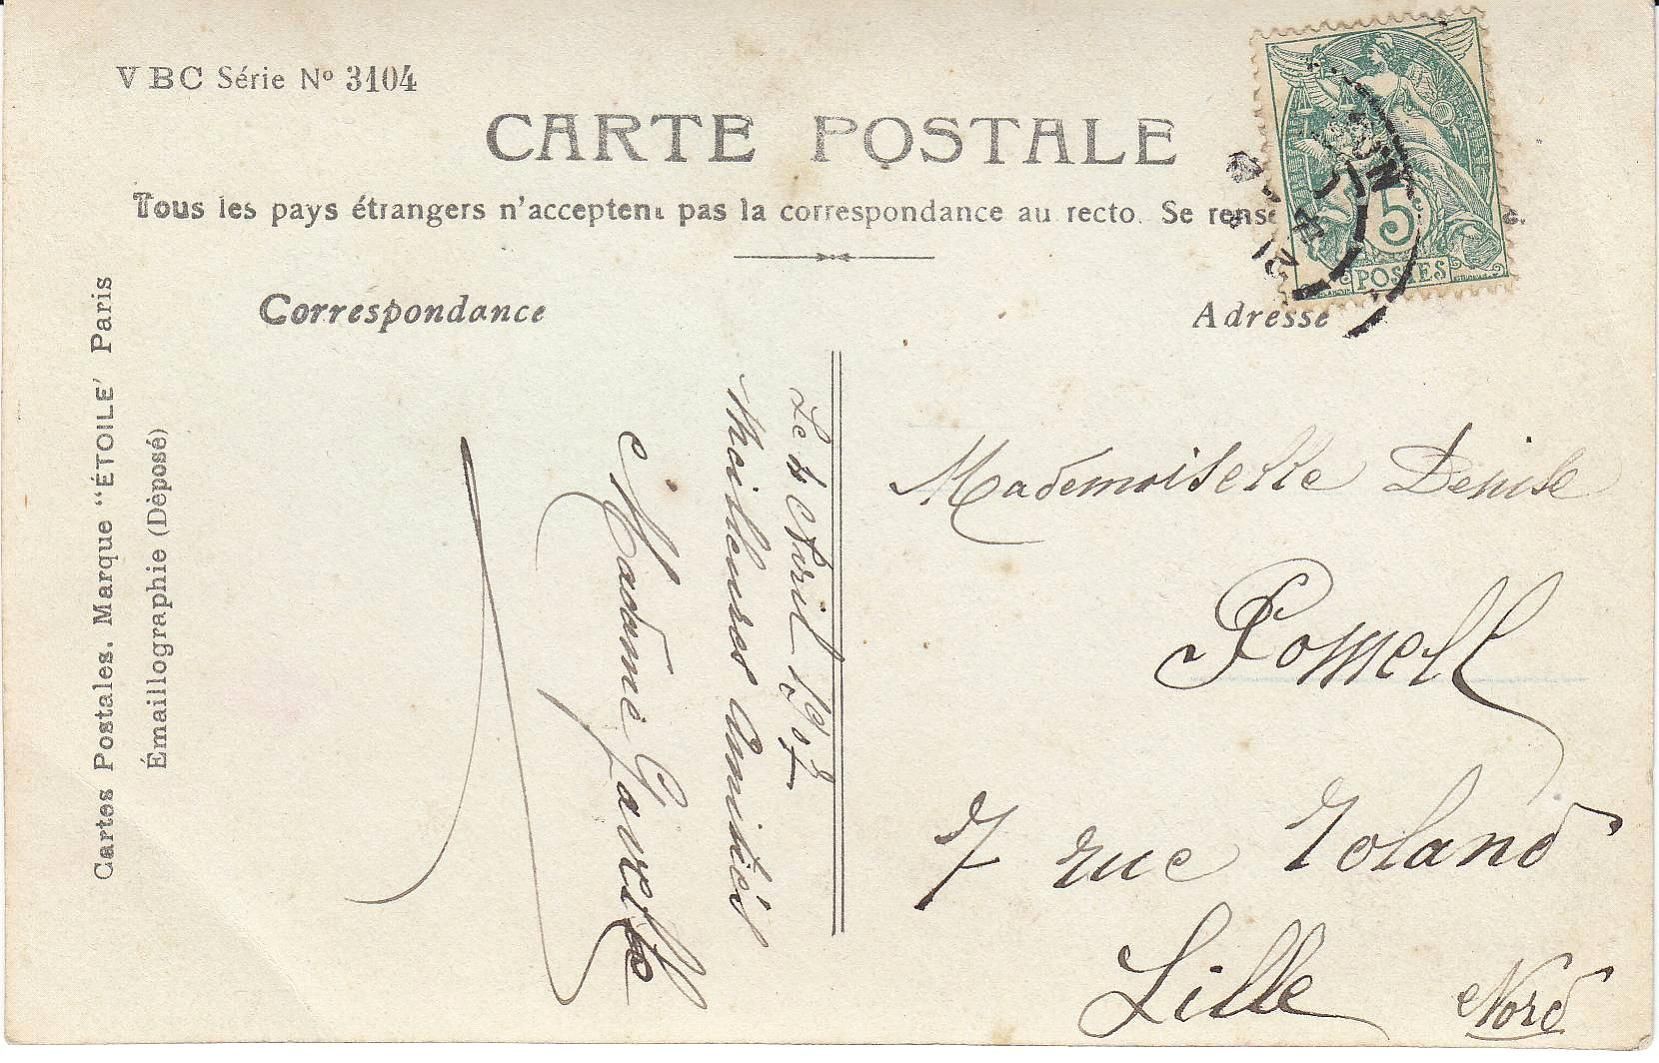 VBC Série Nº 3104
CARTE POSTALE
Tous les pays étrangers n'acceptent pas la correspondance au recto. Se rense
e.
Correspondance
Adresse
5c
POSTES
Cartes Postales. Marque "ÉTOILE" Paris
Émaillographie (Déposé)
Le 4 Avril 1907
Meilleures Amitiés
Madame
Mademoiselle Denise
Pomell
7 rue Roland
Lille Nord